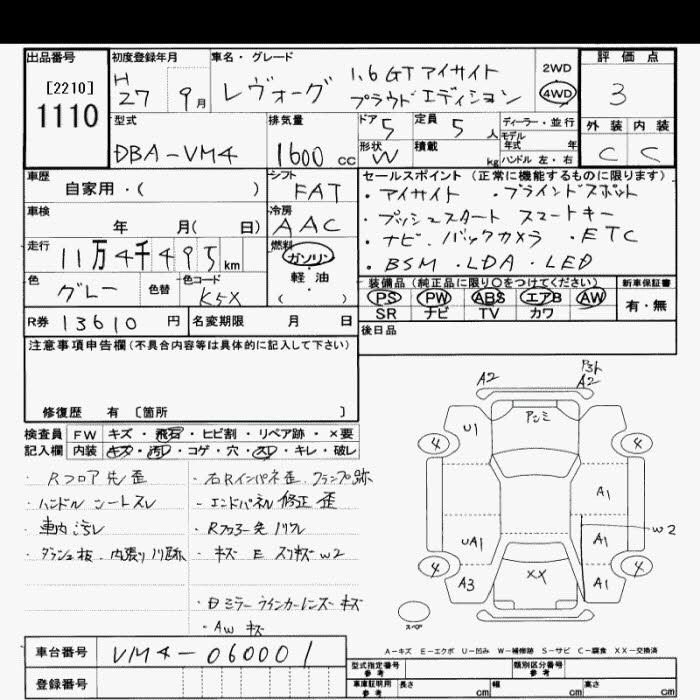 出品番号 初度登録年月 車名・グレード 評価点
[2210] H 1.6GT アイサイト 2WD
1110 27 9月 レヴォーグ プラウドエディション 4WD 3
型式 排気量 ドア 5 定員 5人 ディーラー・並行 外装 内装
モデル年式 年
DBA-VM4 1600cc 形状 W 積載 kg ハンドル 左・右 C C
車歴 シフト セールスポイント(正常に機能するものに限ります)
自家用・( ) FAT ・アイサイト ・ブラインドスポット
車検 冷房 ・プッシュスタート スマートキー
年 月( 日) AAC ・ナビ・バックカメラ・ETC
走行 燃料 ・BSM・LDA・LED
11万4千495km ガソリン
色 色替 色コード 軽・油 装備品(純正品に限り○をつけてください) 新車保証書
グレー K5X ( ) PS PW ABS エアB AW 有・無
SR ナビ TV カワ
R券 13610円 名変期限 月 日 後日品
注意事項申告欄(不具合内容等は具体的に記入して下さい)
修復歴 有 [箇所 ]
検査員 FW キズ・飛石・ヒビ割・リペア跡・×要
記入欄 内装 キズ・汚レ・コゲ・穴・スレ・キレ・破レ
・Rフロア 先 歪 ・右Rインパネ歪、クランプ跡
・ハンドル シートスレ ・エンドパネル修正 歪
・車内汚レ
・キズ E スリキズ W2
・ミラーウインカーレンズキズ
・AW キズ
A2 A2
アンミ
U1
4 4
A1
W2
UA1 A1
4 4
A3 XX A1
スペア
A-キズ E-エクボ U-凹み W-補修跡 S-サビ C-腐食 XX-交換済
車台番号 VM4-060001
登録番号
型式指定番号 参考 類別区分番号 参考
車庫証明用 参考 長さ cm 幅 cm 高さ cm